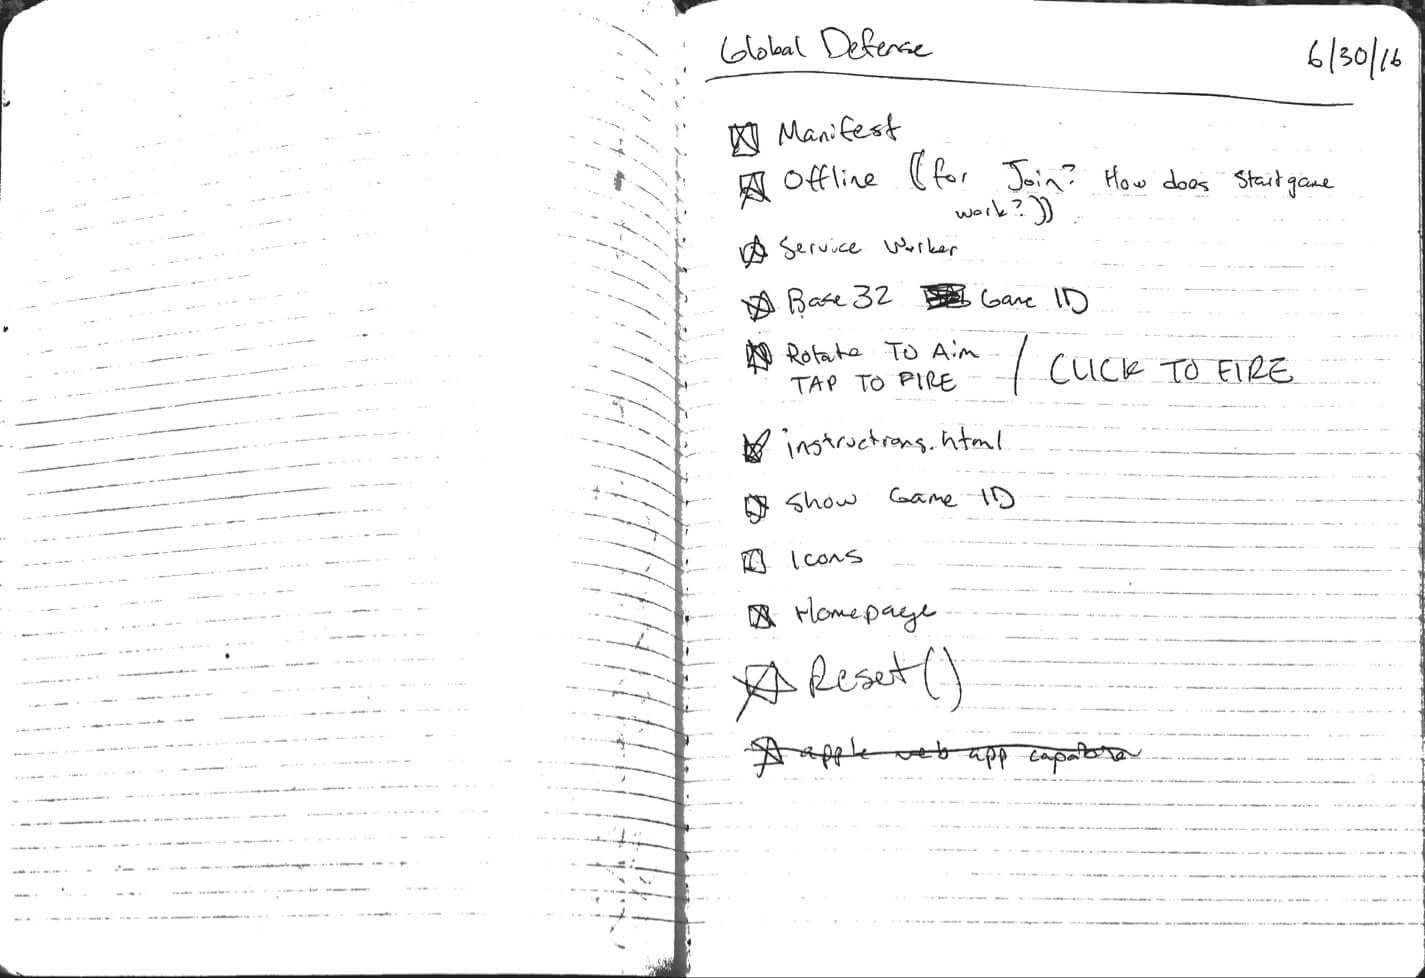 Global Defense
6/30/16
Manifest
Offline ((for Join? How does Startgame
work?))
Service Worker
Base 32 Game ID
Rotate To Aim / CLICK TO FIRE
TAP TO FIRE
instructions.html
Show Game ID
Icons
Homepage
Reset()
apple web app capable